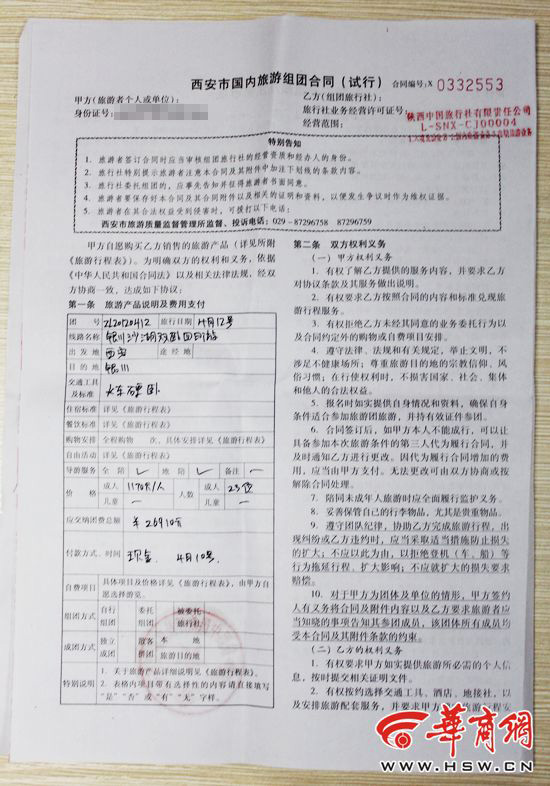 西安市国内旅游组团合同（试行） 合同编号：X 0332553
甲方（旅游者个人或单位）：
身份证号：
乙方（组团旅行社）：
旅行社业务经营许可证号：
经营范围：
陕西中国旅行社有限责任公司
L-SNX-CJ00004
特别告知
1. 旅游者签订合同时应当审核组团旅行社的经营资质和经办人的身份。
2. 旅行社特别提示旅游者注意本合同及其附件中加注下划线的条款内容。
3. 旅行社委托组团的，应事先告知并征得旅游者书面同意。
4. 旅游者要保存好本合同及其合同附件以及相关的证明和资料，以便发生争议时作为维权证据。
5. 旅游者在其合法权益受到侵害时，可拨打以下电话：
西安市旅游质量监督管理所监督、投诉电话：029－87296758 87296759
甲方自愿购买乙方销售的旅游产品（详见所附
《旅游行程表》）。为明确双方的权利和义务，依据
《中华人民共和国合同法》以及相关法律法规，经双
方协商一致，达成如下协议：
第一条 旅游产品说明及费用支付
团 号 ZL20120412 旅行日期 4月12号
线路名称 银川沙湖双卧四日游
出 发 地 西安 途 经 地
目 的 地 银川
交通工具
及标准 火车硬卧
住宿标准 详见《旅游行程表》
餐饮标准 详见《旅游行程表》
购物安排 全程购物 次，具体安排详见《旅游行程表》
自由活动 详见《旅游行程表》
导游服务 全 陪 ✓ 地 陪 ✓ 备注 —
价 格 成人 1170元/人 人数 成人 23位
儿童 — 儿童 —
应交纳团费总额 ¥ 26910元
付款方式、时间 现金 4月10号
自费项目 具体项目及价格详见《旅游行程表》，由甲方
自愿选择游览。
组团方式 自行
组团 委托
组团 被委托
旅行社
成团方式 独立
成团 散客
拼团 本 地
旅游目的地
特别说明 1. 关于旅游产品详细说明见《旅游行程表》。
2. 表格内项目带有选择性的内容请直接填写
“是”“否”或“有”“无”字样。
第二条 双方权利义务
（一）甲方权利义务
1. 有权了解乙方提供的服务内容，并要求乙方
对协议条款及其服务做出说明。
2. 有权要求乙方按照合同的内容和标准兑现旅
游行程服务。
3. 有权拒绝乙方未经其同意的业务委托行为以
及合同约定外的购物或自费项目安排。
4. 遵守法律、法规和有关规定，举止文明，不
涉足不健康场所；尊重旅游目的地的宗教信仰、风
俗习惯；在行使权利时，不损害国家、社会、集体
和他人的合法权益。
5. 报名时如实提供自身情况和资料，确保自身
条件适合参加旅游团旅游，并持有效证件参团。
6. 合同签订后，如甲方本人不能成行，可以让
具备参加本次旅游条件的第三人代为履行合同，并
及时通知乙方进行更改。因代为履行合同增加的费
用，应当由甲方支付。无法更改可由双方协商或按
解除合同处理。
7. 陪同未成年人旅游时应全面履行监护义务。
8. 妥善保管自己的行李物品，尤其是贵重物品。
9. 遵守团队纪律，协助乙方完成旅游行程，出
现纠纷或乙方违约时，应当采取适当措施防止损失
的扩大；不应以此为由，以拒绝登机（车、船）等
行为拖延行程、扩大影响；不应就扩大的损失要求
赔偿。
10. 对于甲方为团体及单位的情形，甲方签约
人有义务将合同及附件内容以及乙方要求旅游者应
当知晓的事项告知其参团成员，该团体所有成员均
受本合同及其附件条款的约束。
（二）乙方的权利义务
1. 有权要求甲方如实提供旅游所必需的个人信
息，按时提交相关证明文件。
2. 有权按约选择交通工具、酒店、地接社，以
及安排旅游配套服务，并要求甲方
华商网
WWW.HSW.CN